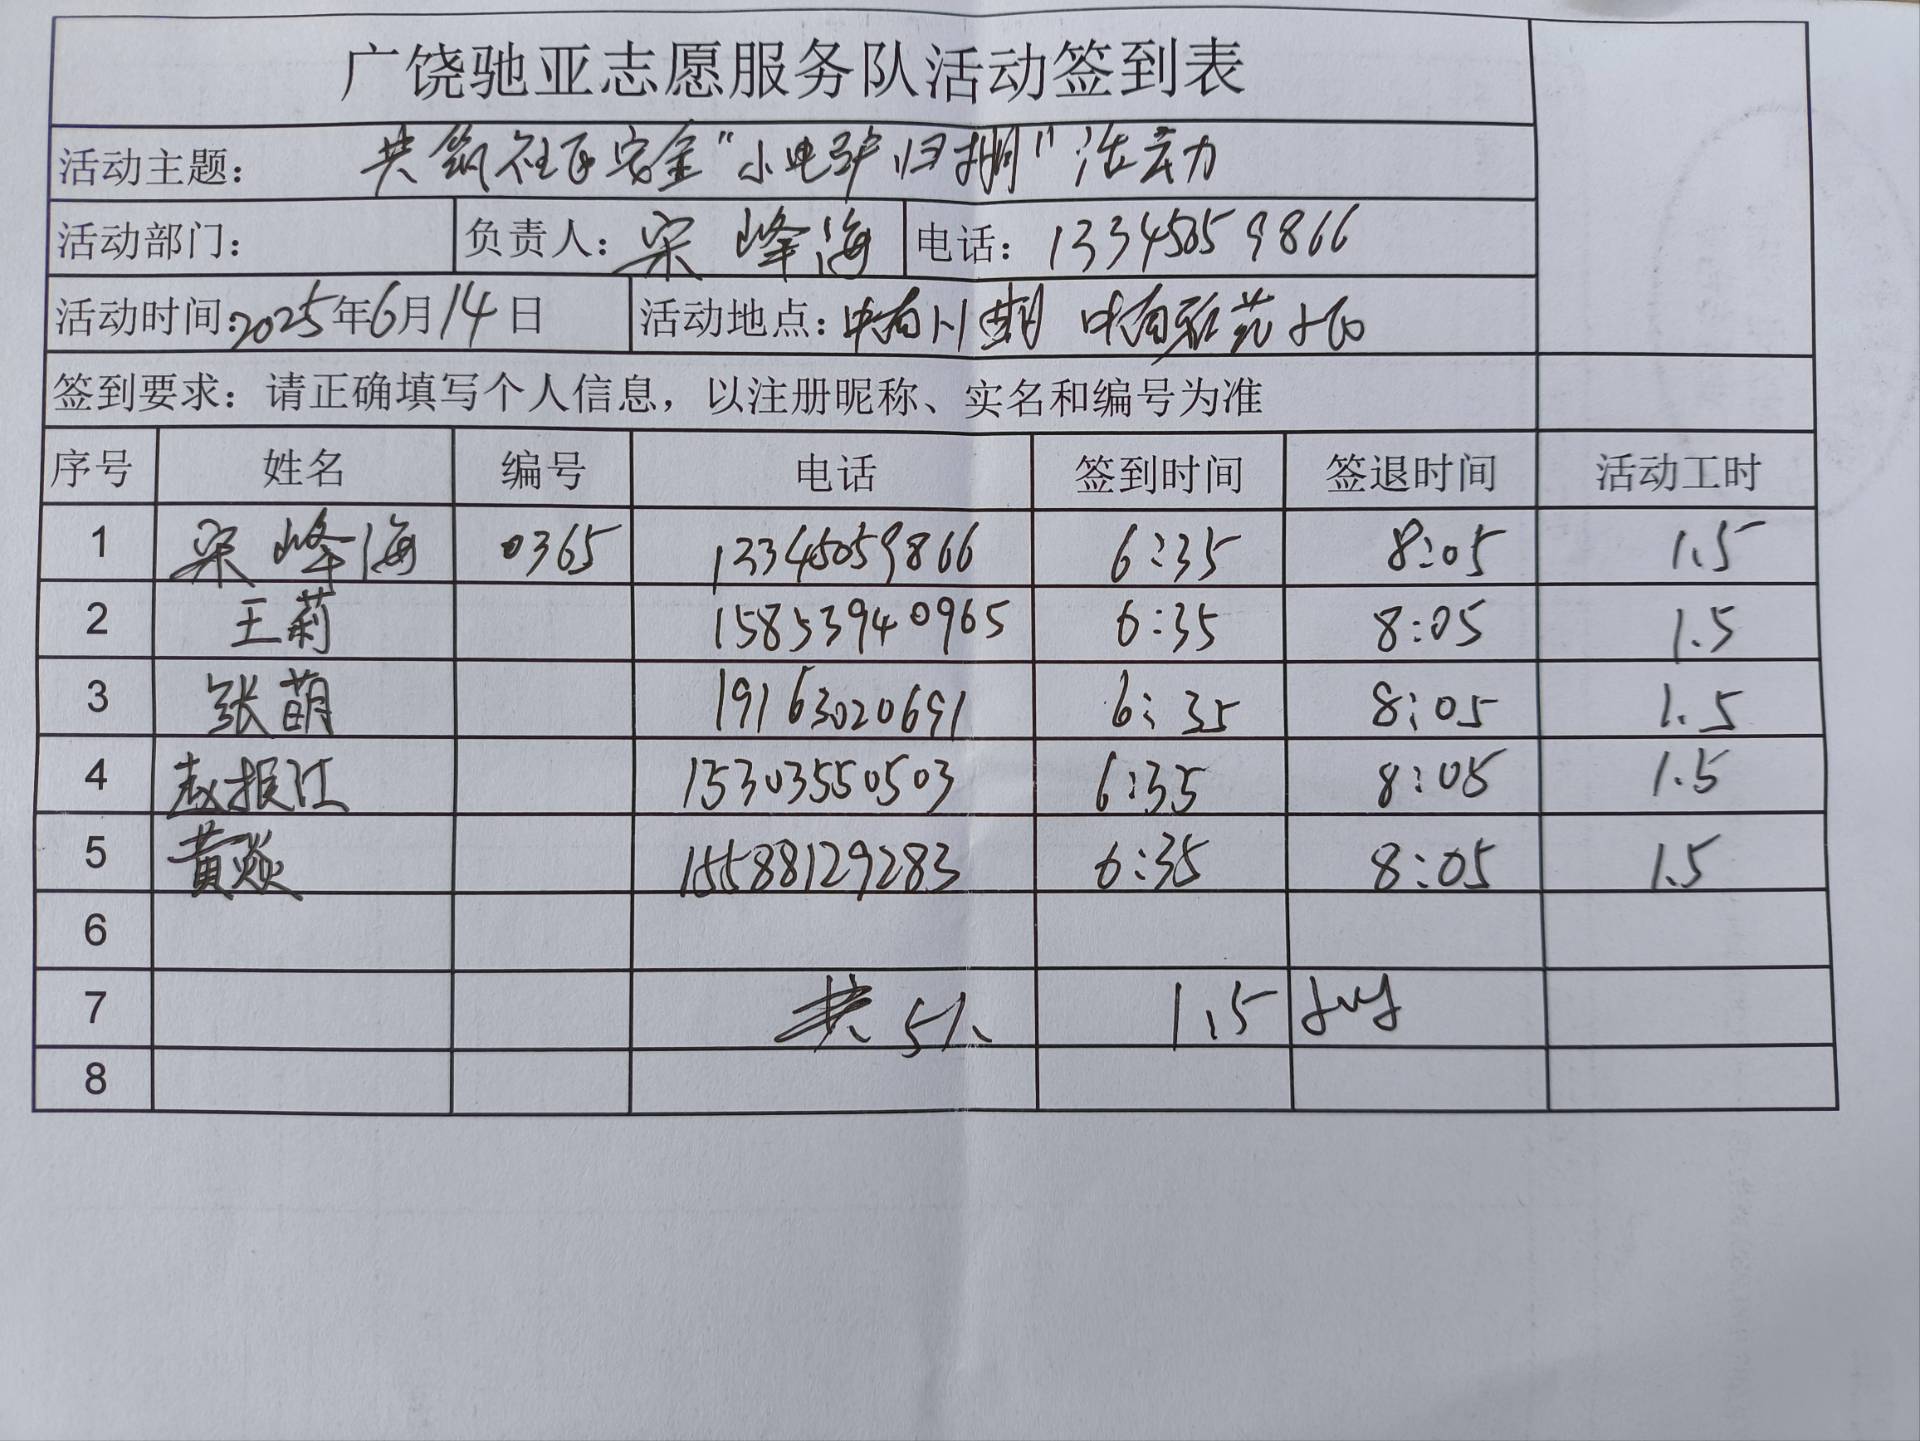 广饶驰亚志愿服务队活动签到表
活动主题：共筑社区安全"小电驴归棚"活动
活动部门： 负责人：宋峰海 电话：13345059866
活动时间：2025年6月14日 活动地点：中南 期 中南 苑
签到要求：请正确填写个人信息，以注册昵称、实名和编号为准
序号 姓名 编号 电话 签到时间 签退时间 活动工时
1 宋峰海 0365 13345059866 6:35 8:05 1.5
2 王莉 15853940965 6:35 8:05 1.5
3 张萌 19163020691 6:35 8:05 1.5
4 赵振江 15303550503 6:35 8:05 1.5
5 黄焱 15588129283 6:35 8:05 1.5
6
7 共5人 1.5 小时
8